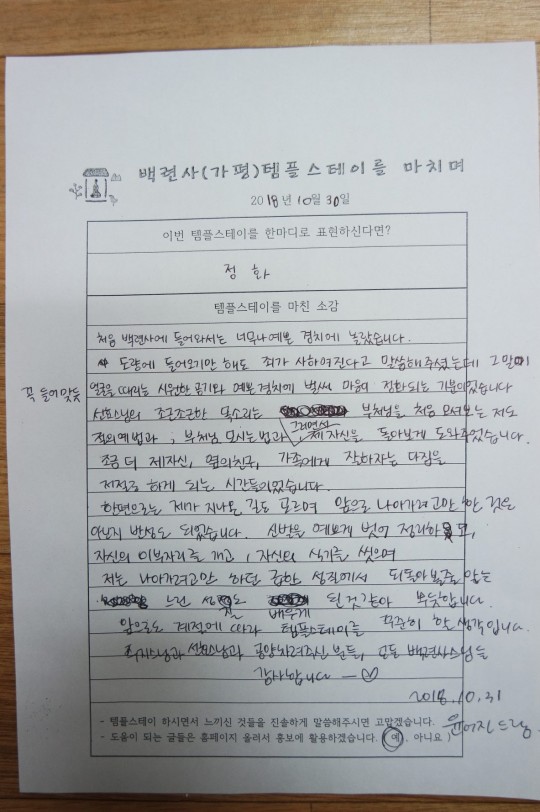 백련사(가평)템플스테이를 마치며
2018년 10월 30일
이번 템플스테이를 한마디로 표현하신다면?
정 화
템플스테이를 마친 소감
처음 백련사에 들어와서는 너무나 예쁜 경치에 놀랐습니다.
도량에 들어오기만 해도 죄가 사하여진다고 말씀해주셨는데 그말이
꼭 들어맞듯 얼굴을 때리는 시원한 공기와 예쁜 경치에 벌써 마음이 정화되는 기분이었습니다
선효스님의 조근조근한 목소리는 부처님을 처음 모셔보는 저도
절의 예법과 , 부처님 모시는 법과 그러면서 제 자신을 돌아보게 도와주었습니다.
조금 더 제자신, 옆의친구, 가족에게 잘하자는 다짐을
저절로 하게 되는 시간들이었습니다.
한편으로는 제가 지나온 길도 모르며 앞으로 나아가려고만 한 것은
아닌지 반성도 되었습니다. 신발을 예쁘게 벗어 정리하고,
자신의 이부자리를 개고, 자신의 식기를 씻으며
저는 나아가려고만 하던 급한 성질에서 뒤돌아볼줄 아는
느린 배우게 된 것 같아 뿌듯합니다.
앞으로도 계절에 따라 템플스테이를 꾸준히 할 생각입니다.
스님과 공양차려주신 분들, 모든 백련사스님들
감사합니다 ―♡
2018.10.31
- 템플스테이 하시면서 느끼신 것들을 진솔하게 말씀해주시면 고맙겠습니다.
- 도움이 되는 글들은 홈페이지 올려서 홍보에 활용하겠습니다. (예, 아니요)
드림